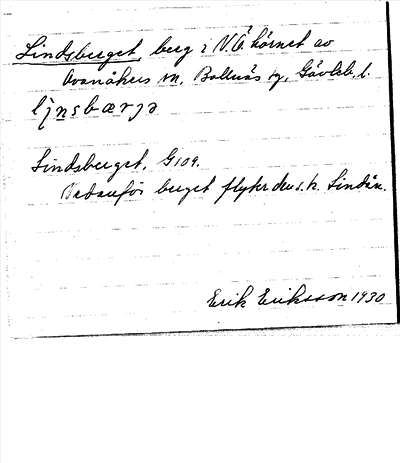 Lindsberget, berg i N.Ö. hörnet av
Ovanåkers sn, Bollnäs tg, Gävleb. l.
Lindsberget, G109.
Nedanför berget flyter den s.k. Lindån.
Erik Eriksson 1930